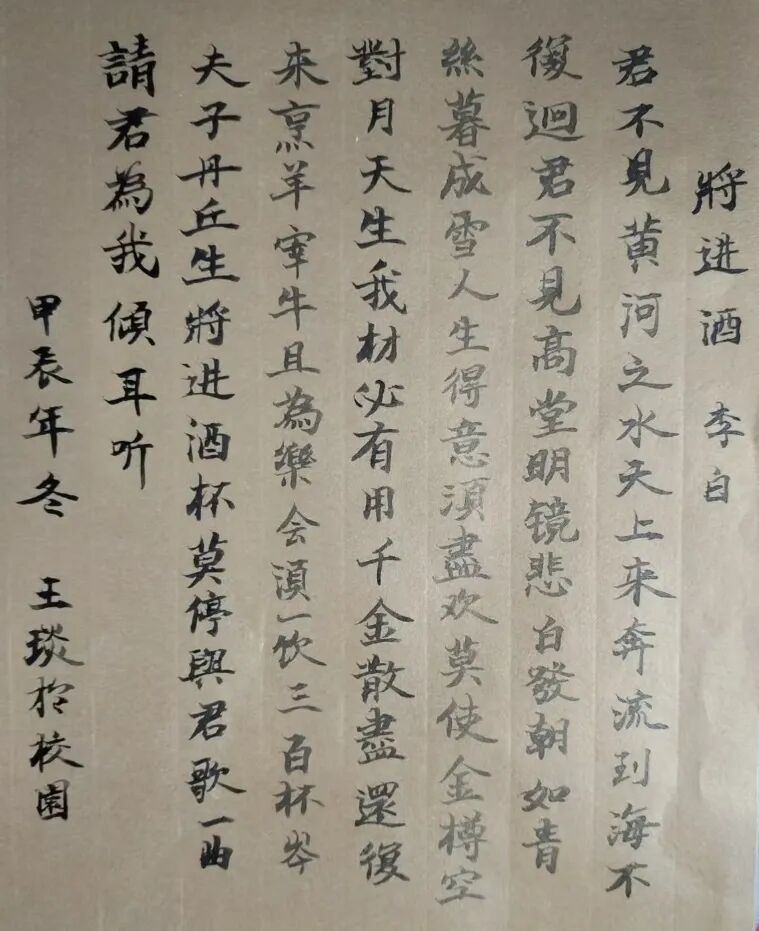 將进酒 李白
君不見黄河之水天上来奔流到海不
復迴君不見高堂明镜悲白發朝如青
絲暮成雪人生得意須盡欢莫使金樽空
對月天生我材必有用千金散盡還復
来烹羊宰牛且為樂会須一饮三百杯岑
夫子丹丘生將进酒杯莫停與君歌一曲
請君為我傾耳听
甲辰年冬 王琰於校園